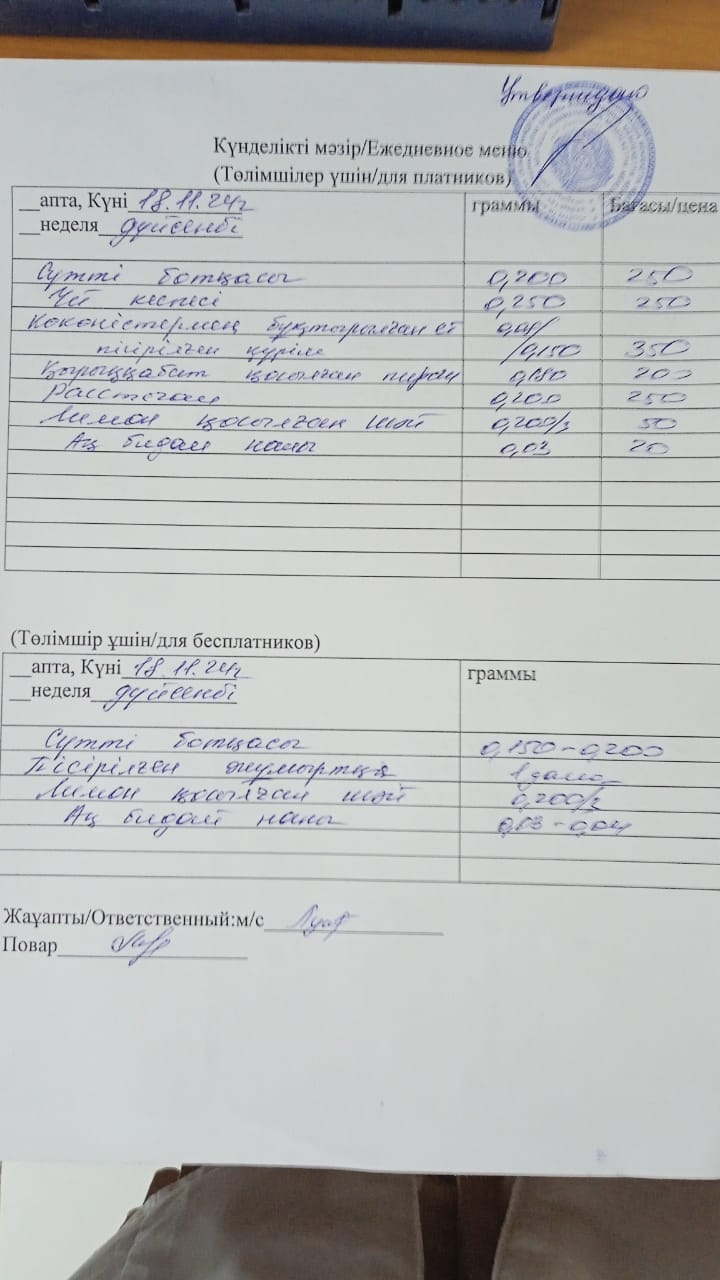 Утверждаю
Күнделікті мәзір/Ежедневное меню
(Төлімшілер үшін/для платников)
__апта, Күні 18.11.24г граммы Бағасы/цена
__неделя дүйсенбі
Сүтті ботқасы 0,200 250
Үй кеспесі 0,250 250
Көкөністермен бұқтырылған ет
пісірілген күріш /0,150 350
Қырыққабат қосылған пирог 0,180 200
Расстегай 0,200 250
Лимон қосылған шәй 0,200/3 50
Ақ бидай наны 0,03 20
(Төлімшір ұшін/для бесплатников)
__апта, Күні 18.11.24г граммы
__неделя дүйсенбі
Сүтті ботқасы 0,150-0,200
Пісірілген жұмыртқа 1 дана
Лимон қосылған шәй 0,200/3
Ақ бидай наны 0,03-0,04
Жаұапты/Ответственный:м/с
Повар